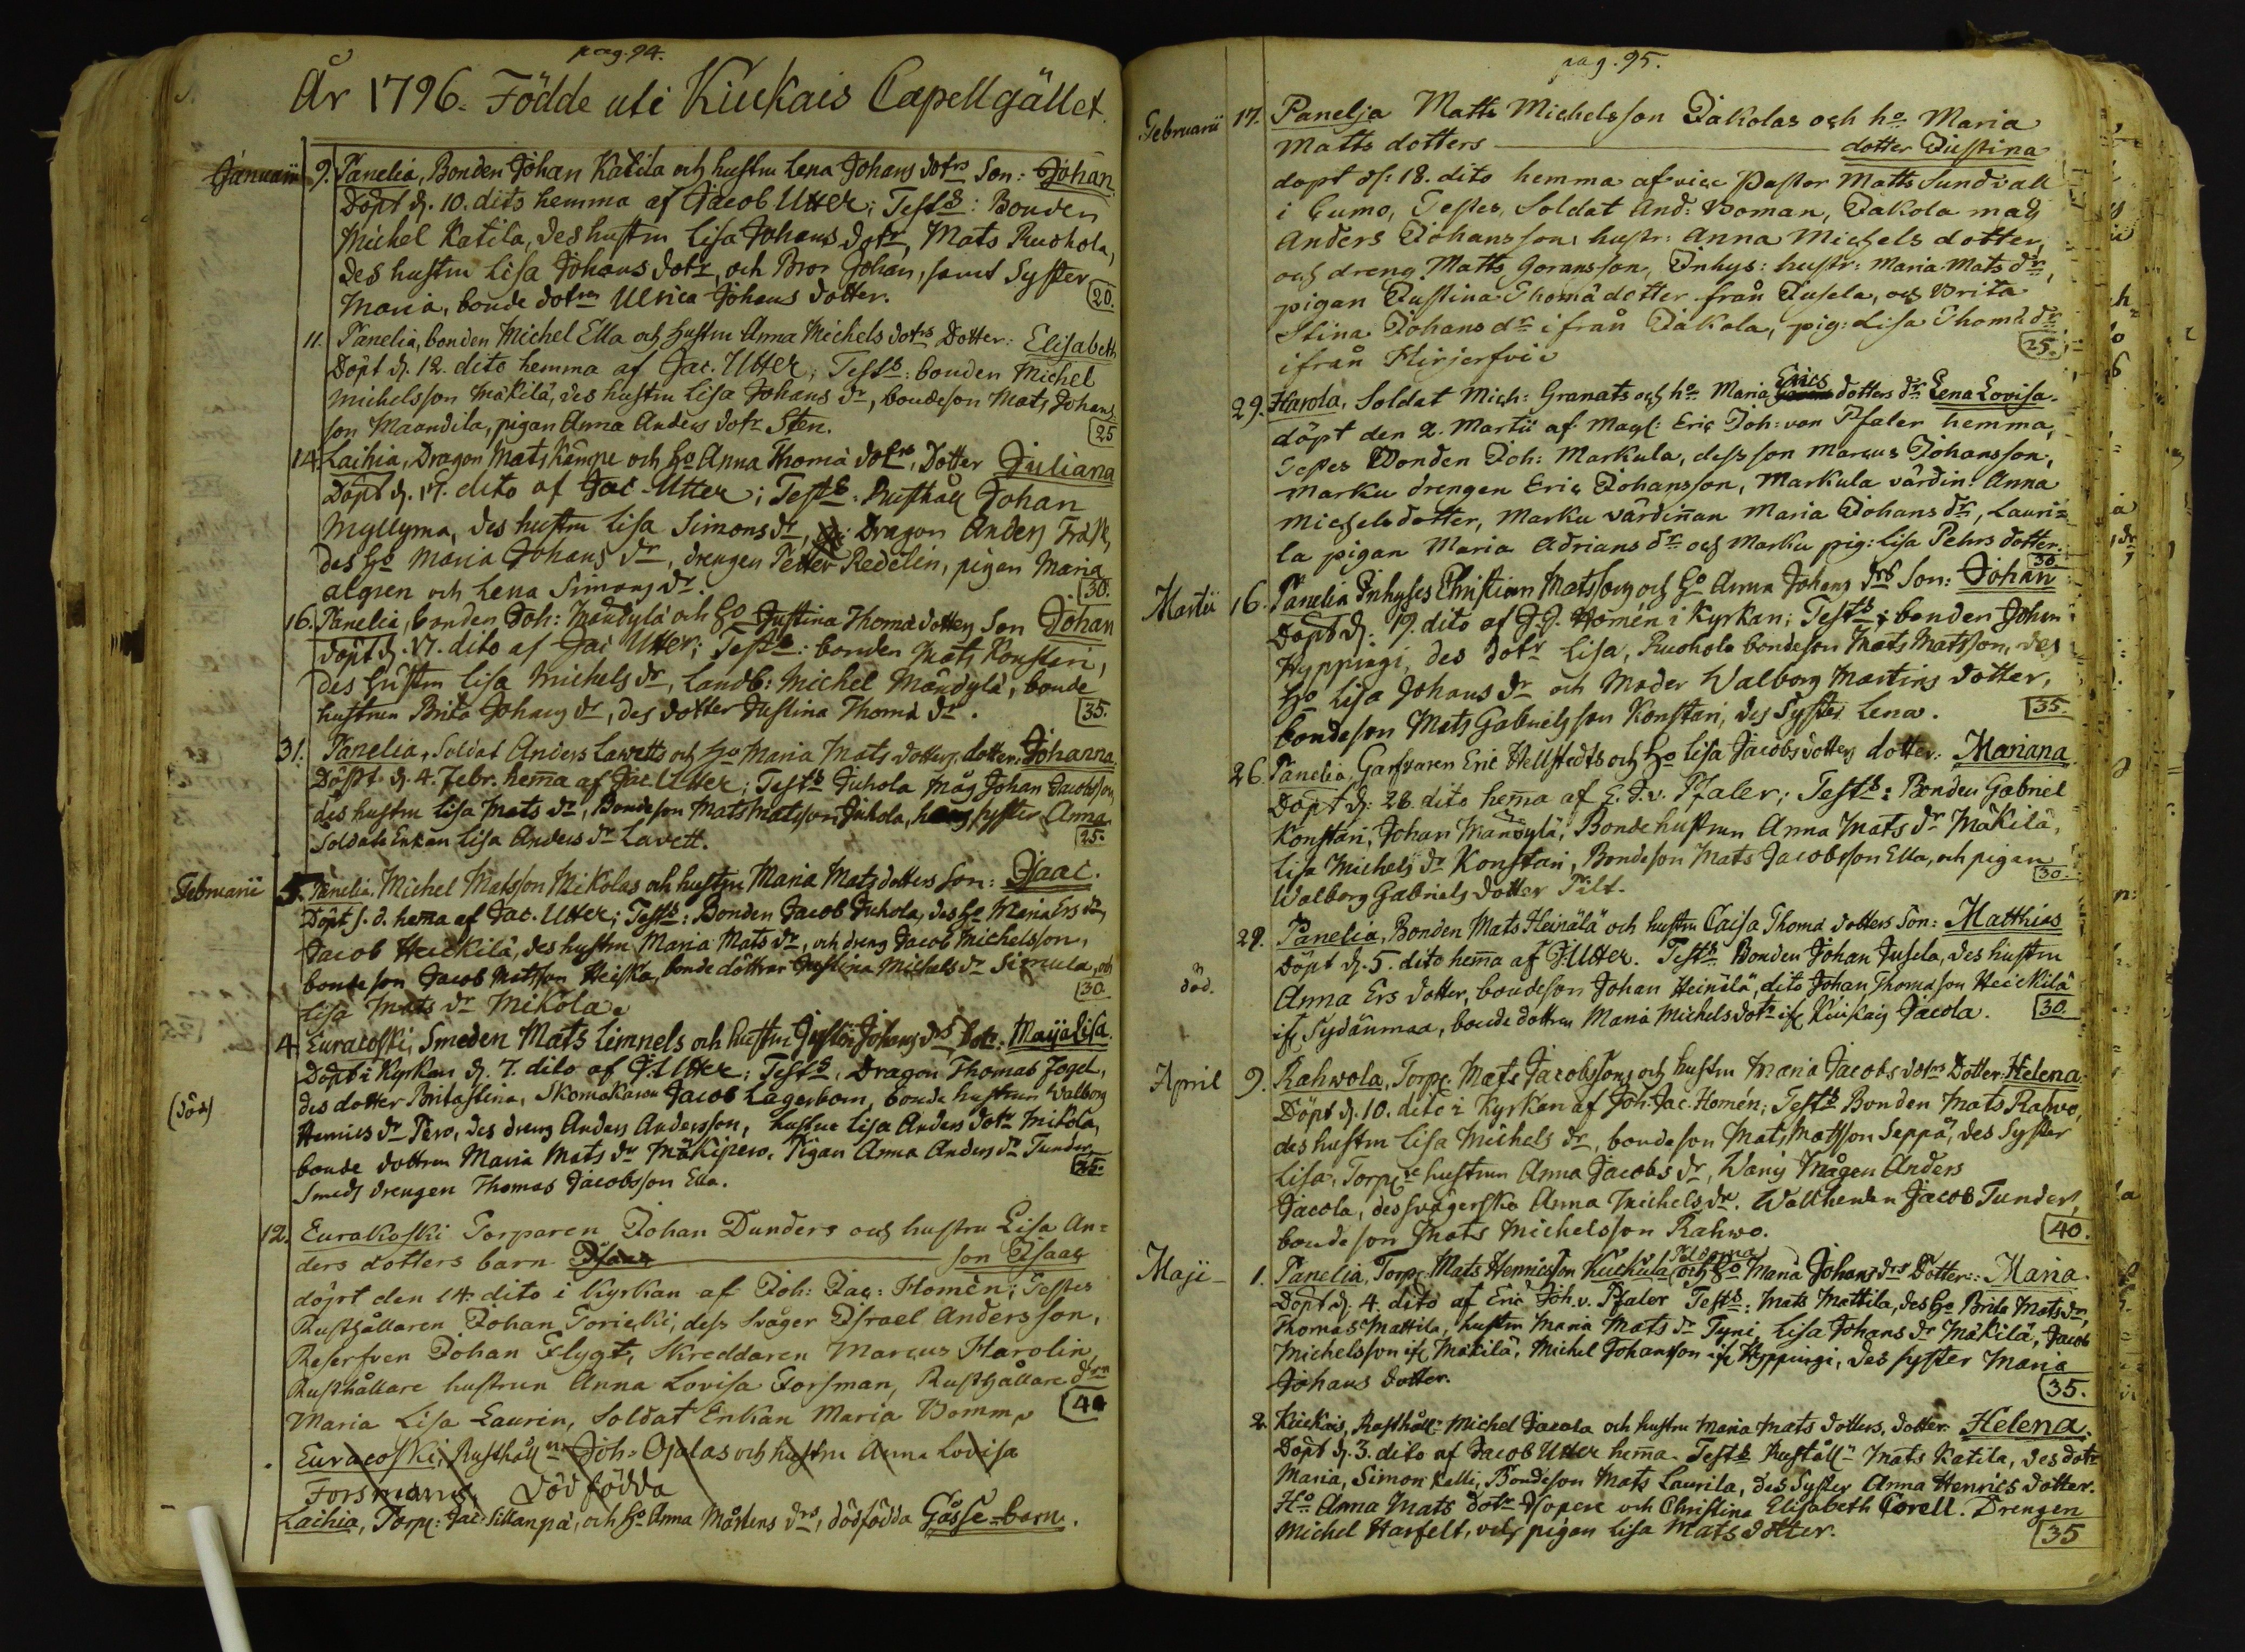 pag. 94.
År 1796. Födde uti Kiukais Capellgället.
Januarii 9. Panelia, Bonden Johan Katila och hustru Lena Johans dotrs Son: Johan.
Döpt d. 10. dito hemma af Jacob Utter; Tests: Bonden
Michel Katila, des hustru Lisa Johans dotr, Mats Ruohola,
des hustru Lisa Johans dotr, och Bror Johan, samt Syster
Maria, bonde dotren Ulrica Johans dotter. 20.
11. Panelia, bonden Michel Ella och hustru Anna Michels dotrs Dotter: Elisabeth
Döpt d. 12. dito hemma af Jac. Utter; Tests: bonden Michel
Michelsson Mäkilä, des hustru Lisa Johans dr, bondeson Mats Johans
son Maandila, pigan Anna Anders dotr Sten. 25
14. Laihia, Dragon Mats Kämpe och ho Anna Thomä dotrs, Dotter Juliana
Döpt d. 17. dito af Jac. Utter; Tests: Rusthåll Johan
Myllyma, des hustru Lisa Simons dr, Dragon Anders Frask,
des ho Maria Johans dr, drengen Petter Redelin, pigan Maria
algren och Lena Simons dr. 30.
16. Panelia, bonden Joh: Mandylä och ho Justina Thomä dotters Son Johan
döpt d. 17. dito af Jac Utter; Tests: bonden Mats Konstari,
des hustru Lisa Michels dr, Landb: Michel Mandylä, bonde
hustrun Brita Johans dr, des dotter Justina Thomä dr. 35.
31. Panelia, Soldat Anders Lawetts och ho Maria Mats dotters dotter: Johanna.
Döpt d. 4. Febr. hema af Jac. Utter; Tests Juhola Måg Johan Jacobsson,
des hustru Lisa Mats dr, Bondeson Mats Matsson Juhola, hans syster Anna
Soldats Enkan Lisa Anders dr Lavett. 25.
Februarii 5. Panelia, Michel Matsson Mikolas och hustru Maria Mats dotters Son: Isaac.
Döpt s. d. hema af Jac. Utter; Tests: Bonden Jacob Juhola, des ho Maria Ers dr,
Jacob Heickilä, des hustru Maria Mats dr, och dreng Jacob Michelsson,
bondeson Jacob Matsson Heiska, bonde döttrar Justina Michels dr Simula, och
Lisa Mats dr Mikola. 30
4. Euracoski, Smeden Mats Limnels och hustru Johans drs Dotr: Maija Lisa.
Döpt i Kyrkan d. 7. dito af J. Utter; Tests, Dragon Thomas Fogel,
(död) des dotter Brita Stina, Skomakaren Jacob Lagerbom, bonde hustrun Walborg
Henrics dr Pero, des dreng Anders Andersson, hustru Lisa Anders dotr Mikola,
bonde dottren Maria Mats dr Mäkipero, Pigan Anna Anders dr Tunder,
Smeds drengen Thomas Jacobsson Ella. 35.
12. Eurakoski Torparen Johan Dunders och hustru Lisa An=
ders dotters barn Isaac son Isaac
döpt den 14 dito i Kyrkan af Joh: Jac: Homén; Testes
Rusthållaren Johan Torieki, dess Svåger Israel Andersson,
Reserfven Johan Flygt, Skreddaren Marcus Harolin,
Rusthållare hustrun Anna Lovisa Forsman, Rusthållare drn
Maria Lisa Laurin, Soldat Enkan Maria Bomm
Euracoski, Rusthåll Joh: Ojalas och hustru Anna Lovisa
Forsmans, dödfödda
Laihia, Torp: Jac Sillanpä, och ho Anna Mårtens drs, dödfödda Gåsse-barn.
pag. 95.
Februarii 17. Panelja Matts Michelsson Jakolas och ho Maria
Matts dotters dotter Justina
döpt d: 18. dito hemma af vice Pastor Matts Sundvall
i Eumo, Testes, Soldat And: Boman, Jakola mag
Anders Johansson, hustr: Anna Michels dotter,
och dreng Matts Göransson, Inhys: hustr: Maria Mats dr,
pigan Justina Thomä dotter från Jusela, och Brita
Stina Johans dr ifrån Jakola, pig: Lisa Thomä dr
ifrån Hirjerfvi 25.
29. Harola, Soldat Mich: Granats och ho Maria Erics dotters dr Lena Lovisa.
döpt den 2. Martii af Mag: Eric Joh: von Pfaler hemma,
Testes Bonden Joh: Markula, dess son Marcus Johansson,
Marku drengen Eric Johansson, Markula värdin: Anna
Michelsdotter, Marku värdinnan Maria Johans dr, Lauri=
la pigan Maria Adrians dr och Marku pig: Lisa Pehrs dotter. 30
Martii 16. Panelia Inhyses Christian Matssons och ho Anna Johans drs Son: Johan
Döpt d. 19. dito af J. J. Homén i Kyrkan; Tests; bonden Johan
Hyppingi, des dotr Lisa, Ruohola bondeson Mats Matsson, des
ho Lisa Johans dr och Moder Walborg Martins dotter,
bondeson Mats Gabrielsson Konstari, des Syster Lena. 35.
26. Panelia, Garfvaren Eric Hellstedts och ho Lisa Jacobsdotters dotter: Mariana
Döpt d. 28. dito hema af E. J. v. Pfaler; Tests: Bonden Gabriel
Konstari, Johan Mandylä, Bonde hustrun Anna Mats dr Mäkilä,
Lisa Michels dr Konstari, Bondeson Mats Jacobsson Ella, och pigan
Walborg Gabriels dotter Pilt. 30.
29. Panelia, Bonden Mats Heinälä och hustru Caisa Thomä dotters Son: Matthias
Döpt d. 5. dito hema af J. Utter. Tests Bonden Johan Jusela, des hustru
död. Anna Ers dotter, bondeson Johan Heinälä, dito Johan Thomasson Heickilä
if: Sydänmaa, bonde dottren Maria Michels dotr if: Kiukais Jacola. 30.
April 9. Rahwola, Torp. Mats Jacobssons och hustru Maria Jacobs dotrs Dotter: Helena.
Döpt d. 10. dito i Kyrkan af Joh: Jac. Homén; Tests Bonden Mats Rahwo,
des hustru Lisa Michels dr, bondeson Mats Matsson Seppä, des Syster
Lisa, Torp: hustrun Anna Jacobs dr, Wanis Mågen Anders
Jacola, des svägerska Anna Michels dr. Wallherden Jacob Tunder,
bondeson Mats Michelsson Rahwo. 40.
Maji 1. Panelia, Torp. Mats Henricsson Kuckula och ho Maria Johans drs Dotter: Maria.
Döpt d. 4. dito af Eric Joh. v. Pfaler Tests: Mats Mattila, des ho Brita Mats dr,
Thomas Mattila, hustru Maria Mats dr Tyni, Lisa Johans dr Mäkilä, Jacob
Michelsson if: Mäkilä, Michel Johansson if: Hyppingi, des syster Maria
Johans dotter. 35.
2. Kiukais, Rusthåll: Michel Jacola och hustru Maria Mats dotters, dotter Helena.
Döpt d. 3. dito af Jacob Utter hema. Tests Rusthåll: Mats Katila, des dotr
Maria, Simon Kalli, Bondeson Mats Laurila, des Syster Anna Henrics dotter.
Ho Anna Mats dotr och Christina Elisabeth Corell. Drengen
Michel Harfelt, och pigan Lisa Mats dotter. 35